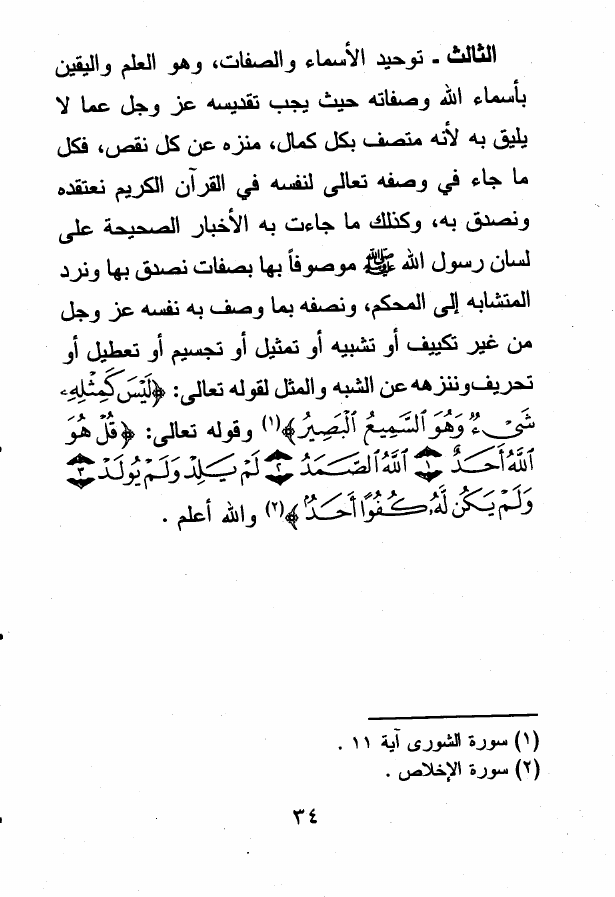 الثالث ـ توحيد الأسماء والصفات، وهو العلم واليقين
بأسماء الله وصفاته حيث يجب تقديسه عز وجل عما لا
يليق به لأنه متصف بكل كمال، منزه عن كل نقص، فكل
ما جاء في وصفه تعالى لنفسه في القرآن الكريم نعتقده
ونصدق به، وكذلك ما جاءت به الأخبار الصحيحة على
لسان رسول الله ﷺ موصوفاً بها بصفات نصدق بها ونرد
المتشابه إلى المحكم، ونصفه بما وصف به نفسه عز وجل
من غير تكييف أو تشبيه أو تمثيل أو تجسيم أو تعطيل أو
تحريف وننزهه عن الشبه والمثل لقوله تعالى: ﴿لَيْسَ كَمِثْلِهِۦ
شَىْءٌ وَهُوَ ٱلسَّمِيعُ ٱلْبَصِيرُ﴾(١) وقوله تعالى: ﴿قُلْ هُوَ
ٱللَّهُ أَحَدٌ ١ ٱللَّهُ ٱلصَّمَدُ ٢ لَمْ يَلِدْ وَلَمْ يُولَدْ ٣
وَلَمْ يَكُن لَّهُۥ كُفُوًا أَحَدٌ﴾(٢) والله أعلم .
(١) سورة الشورى آية ١١ .
(٢) سورة الإخلاص .
٣٤